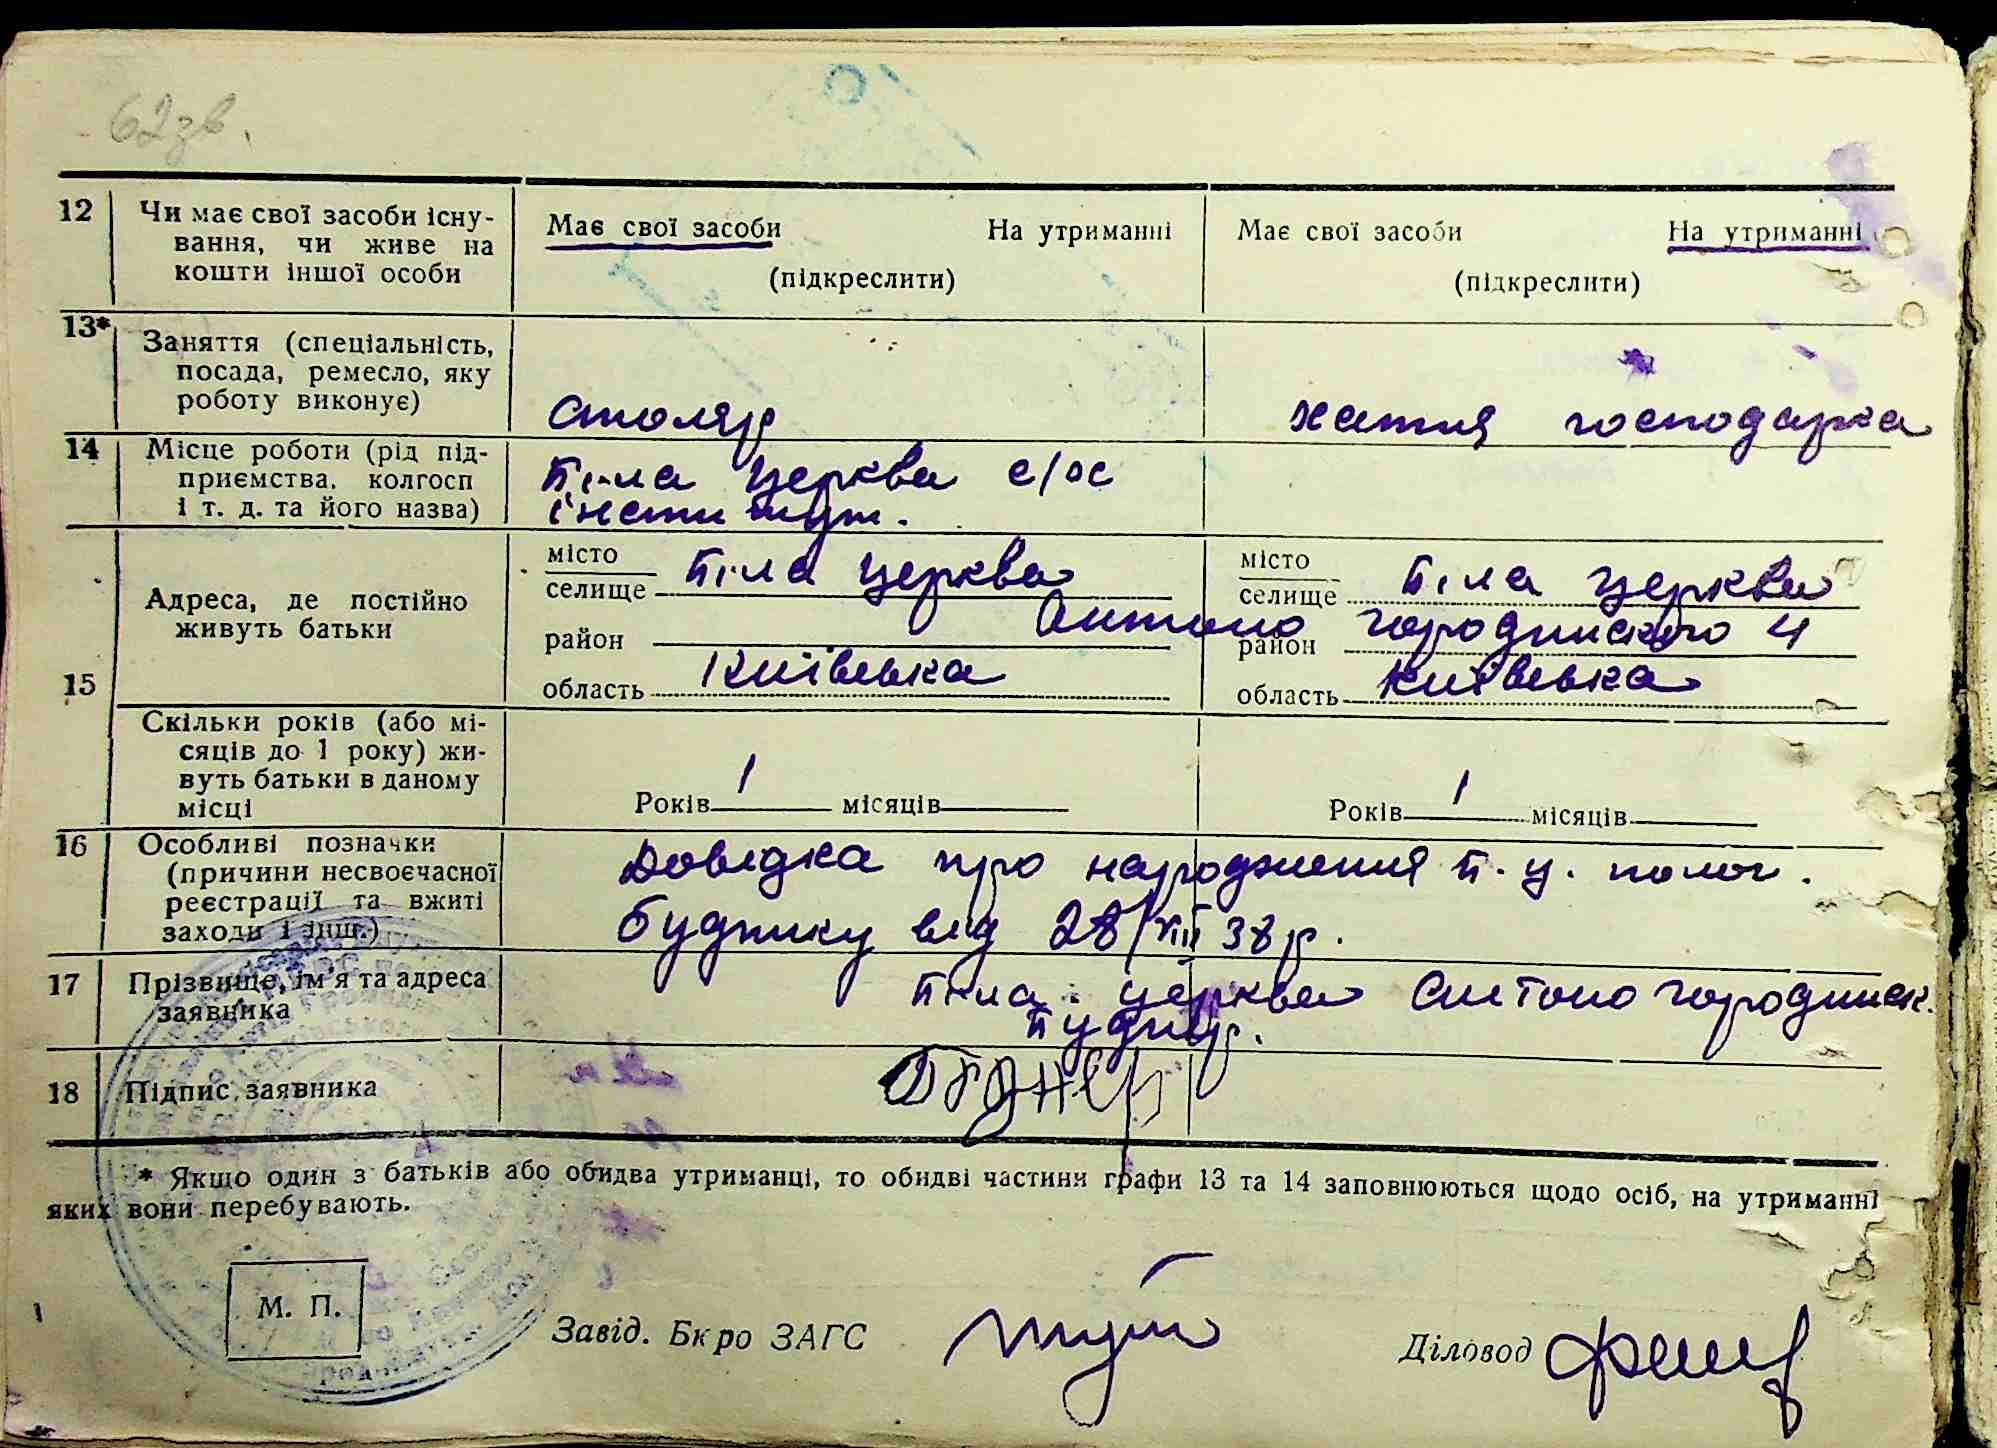 62зв.
12 Чи має свої засоби існу-
вання, чи живе на
кошти іншої особи
Має свої засоби На утриманні
(підкреслити)
Має свої засоби На утриманні
(підкреслити)
13* Заняття (спеціальність,
посада, ремесло, яку
роботу виконує)
столяр
хатня господарка
14 Місце роботи (рід під-
приємства, колгосп
і т. д. та його назва)
Біла Церква с/ос
інститут.
15 Адреса, де постійно
живуть батьки
місто
селище Біла Церква
район
область Київська
місто
селище Біла Церква
Антоно Городиського 4
район
область Київська
Скільки років (або мі-
сяців до 1 року) жи-
вуть батьки в даному
місці
Років 1 місяців
Років 1 місяців
16 Особливі позначки
(причини несвоєчасної
реєстрації та вжиті
заходи і інш.)
Довідка про народження Б. Ц. полог.
будинку від 28/XII 38 р.
17 Прізвище, ім'я та адреса
заявника
Біла Церква Антоно Городиськ.
18 Підпис заявника
* Якщо один з батьків або обидва утриманці, то обидві частини графи 13 та 14 заповнюються щодо осіб, на утриманні
яких вони перебувають.
М. П.
Завід. Бюро ЗАГС
Діловод